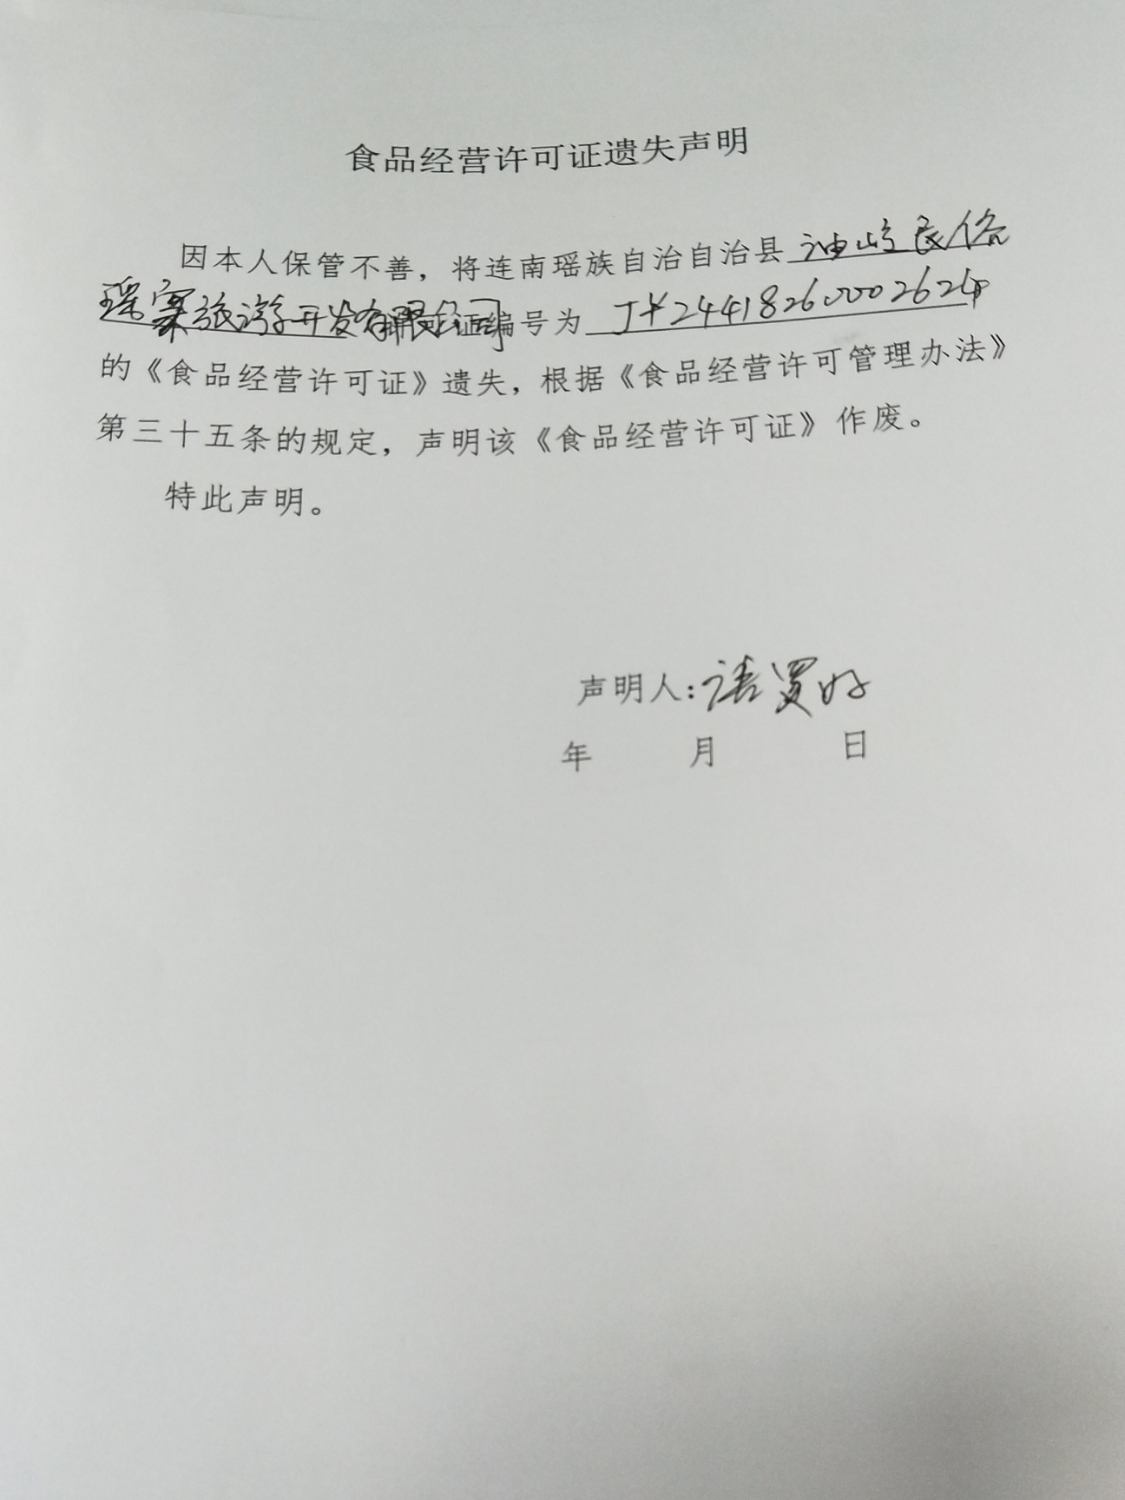 食品经营许可证遗失声明
因本人保管不善，将连南瑶族自治自治县油岭民俗
瑶寨旅游开发有限公司编号为JY24418260002624
的《食品经营许可证》遗失，根据《食品经营许可管理办法》
第三十五条的规定，声明该《食品经营许可证》作废。
特此声明。
声明人：
年 月 日